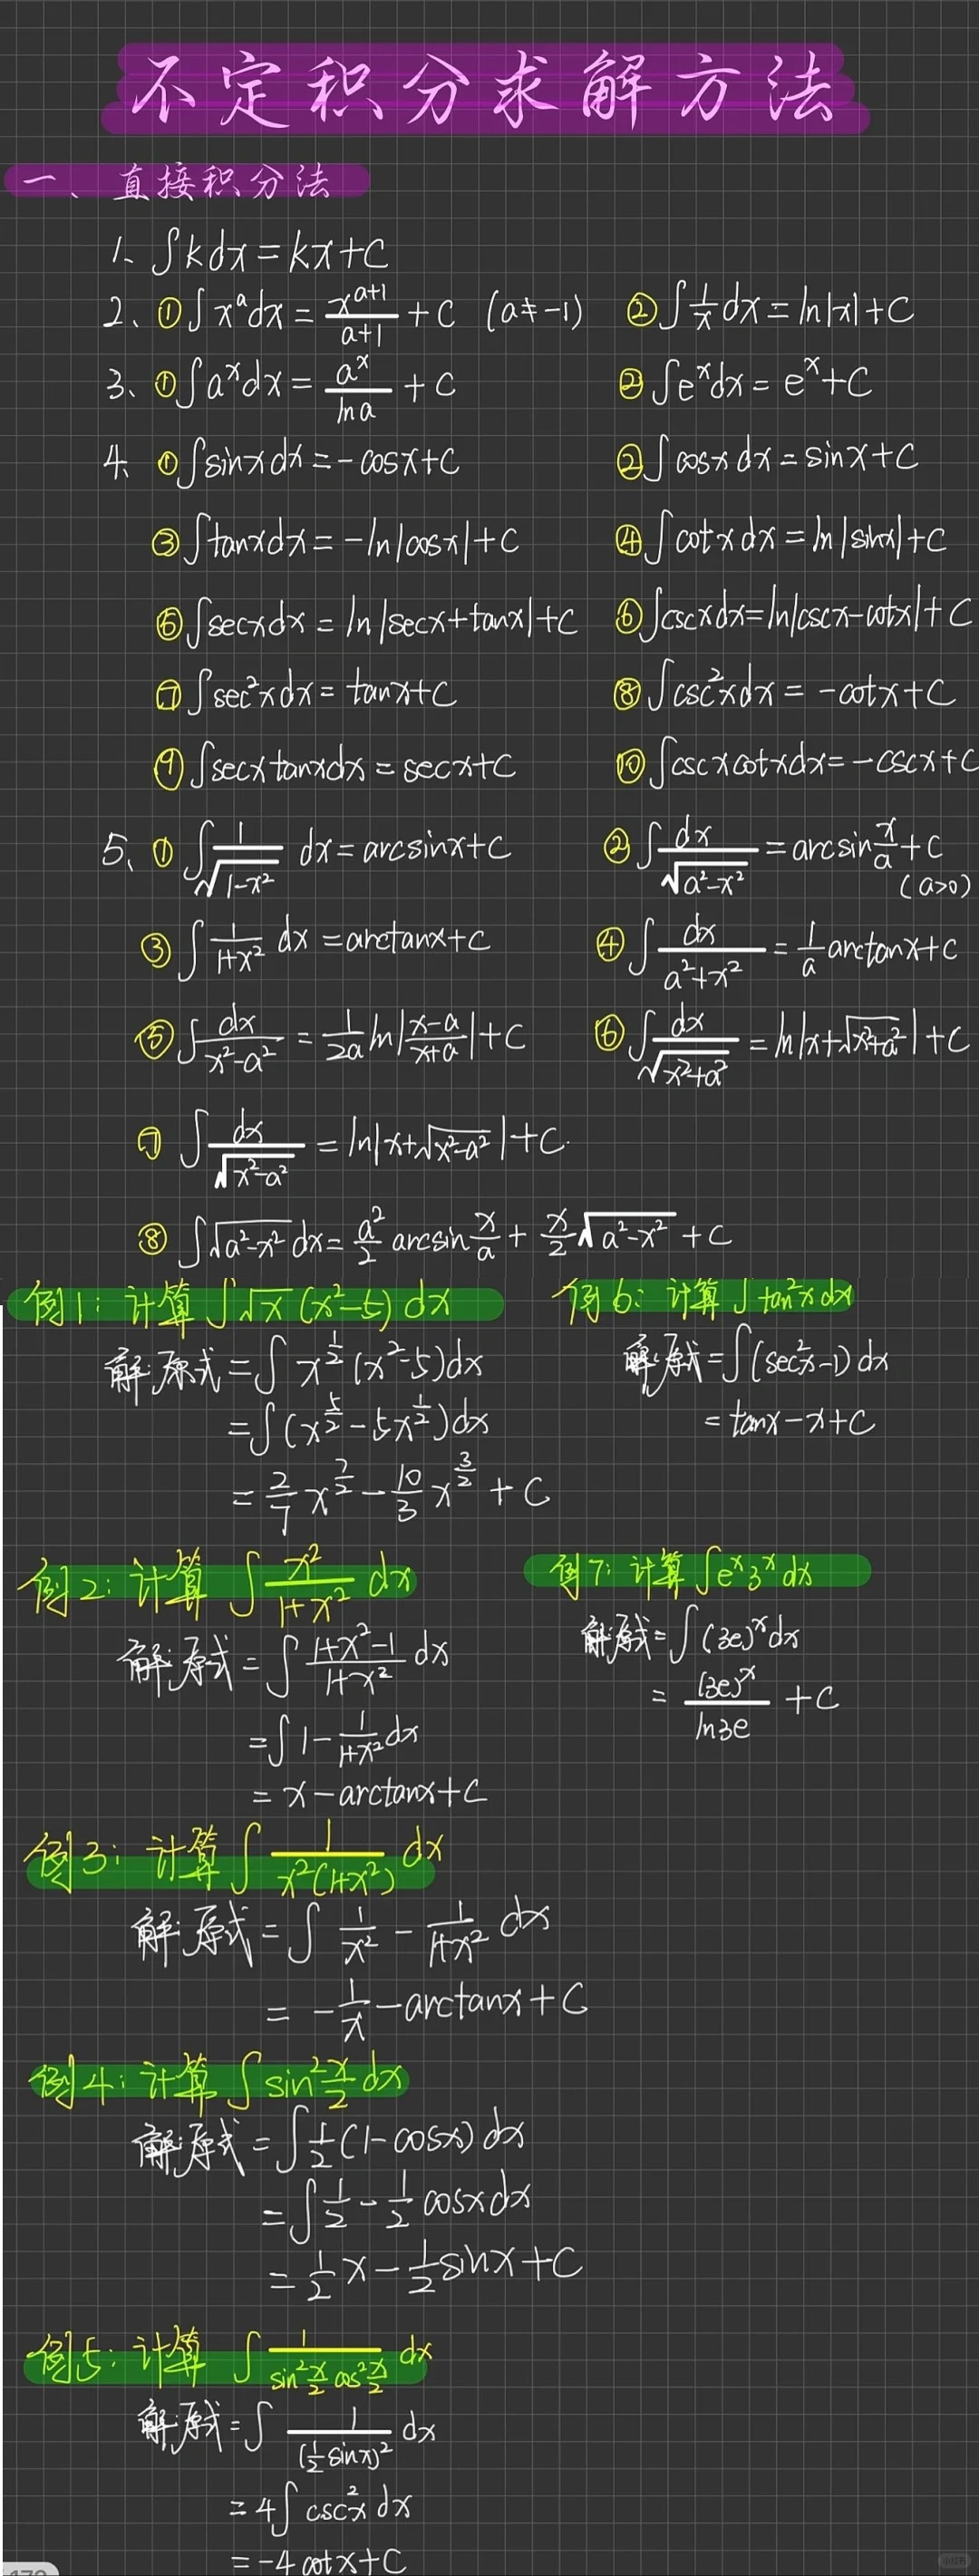 不定积分求解方法
一、直接积分法
1、∫kdx=kx+C
2、①∫xᵃdx=x^(a+1)/(a+1)+C (a≠-1) ②∫1/x dx=ln|x|+C
3、①∫aˣdx=aˣ/lna+C ②∫eˣdx=eˣ+C
4、①∫sinxdx=-cosx+C ②∫cosxdx=sinx+C
③∫tanxdx=-ln|cosx|+C ④∫cotxdx=ln|sinx|+C
⑤∫secxdx=ln|secx+tanx|+C ⑥∫cscxdx=ln|cscx-cotx|+C
⑦∫sec²xdx=tanx+C ⑧∫csc²xdx=-cotx+C
⑨∫secxtanxdx=secx+C ⑩∫cscxcotxdx=-cscx+C
5、①∫1/√(1-x²) dx=arcsinx+C ②∫dx/√(a²-x²)=arcsin x/a+C (a>0)
③∫1/(1+x²) dx=arctanx+C ④∫dx/(a²+x²)=1/a arctanx+C
⑤∫dx/(x²-a²)=1/2a ln|(x-a)/(x+a)|+C ⑥∫dx/√(x²+a²)=ln|x+√(x²+a²)|+C
⑦∫dx/√(x²-a²)=ln|x+√(x²-a²)|+C
⑧∫√(a²-x²)dx=a²/2 arcsin x/a+x/2 √(a²-x²)+C
例1:计算∫√x(x²-5)dx
解:原式=∫x^(1/2)(x²-5)dx
=∫(x^(5/2)-5x^(1/2))dx
=2/7 x^(7/2)-10/3 x^(3/2)+C
例6:计算∫tan²xdx
解:原式=∫(sec²x-1)dx
=tanx-x+C
例2:计算∫x²/(1+x²) dx
解:原式=∫(1+x²-1)/(1+x²) dx
=∫1-1/(1+x²) dx
=x-arctanx+C
例7:计算∫eˣ3ˣdx
解:原式=∫(3e)ˣdx
=(3e)ˣ/ln3e+C
例3:计算∫1/(x²(1+x²)) dx
解:原式=∫1/x²-1/(1+x²) dx
=-1/x-arctanx+C
例4:计算∫sin² x/2 dx
解:原式=∫1/2(1-cosx)dx
=∫1/2-1/2 cosxdx
=1/2 x-1/2 sinx+C
例5:计算∫1/(sin² x/2 cos² x/2) dx
解:原式=∫1/(1/2 sinx)² dx
=4∫csc²xdx
=-4cotx+C
小红书